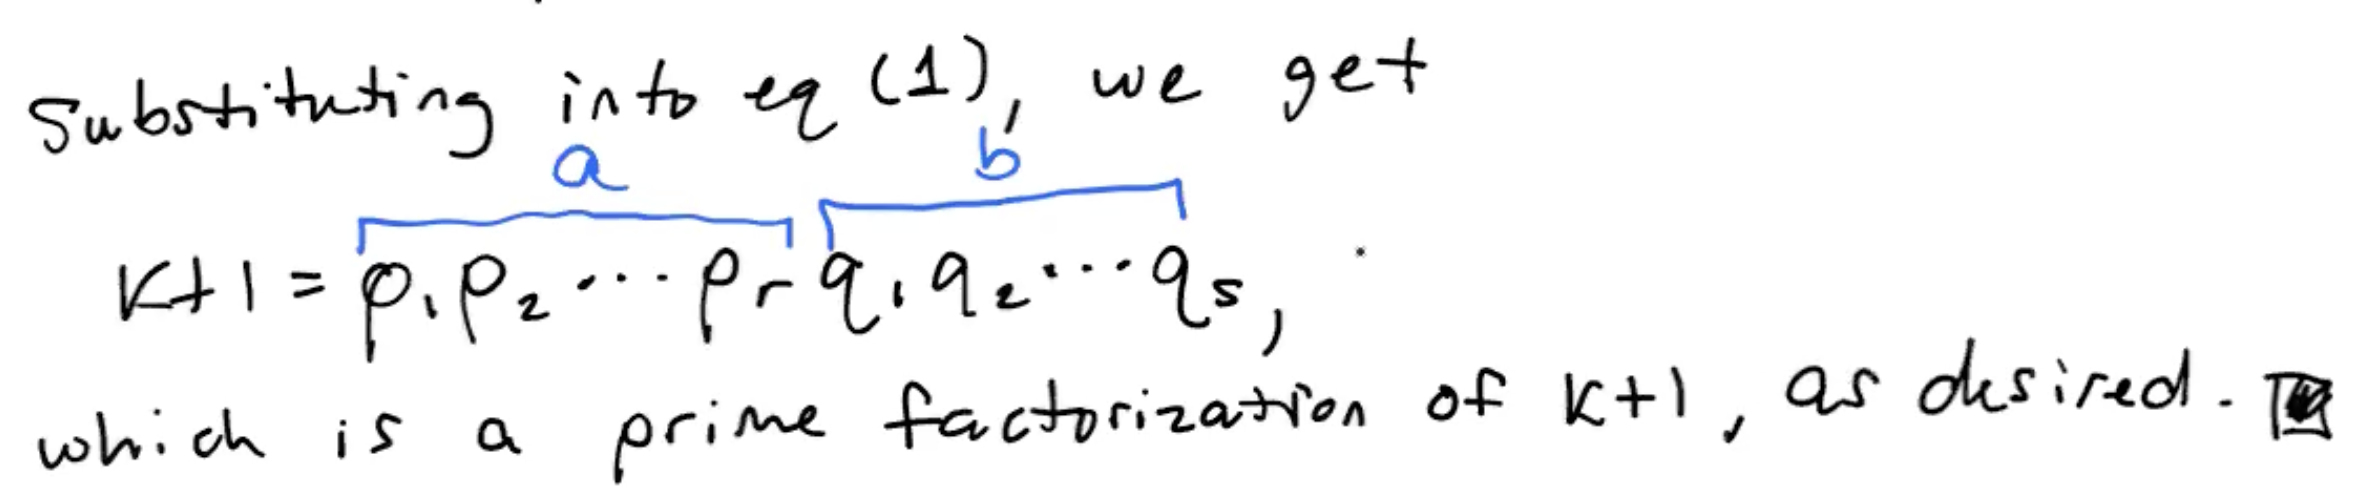 Substituting into eq (1), we get
a b
K+1 = p₁p₂···pᵣ q₁q₂···qₛ,
which is a prime factorization of K+1, as desired.